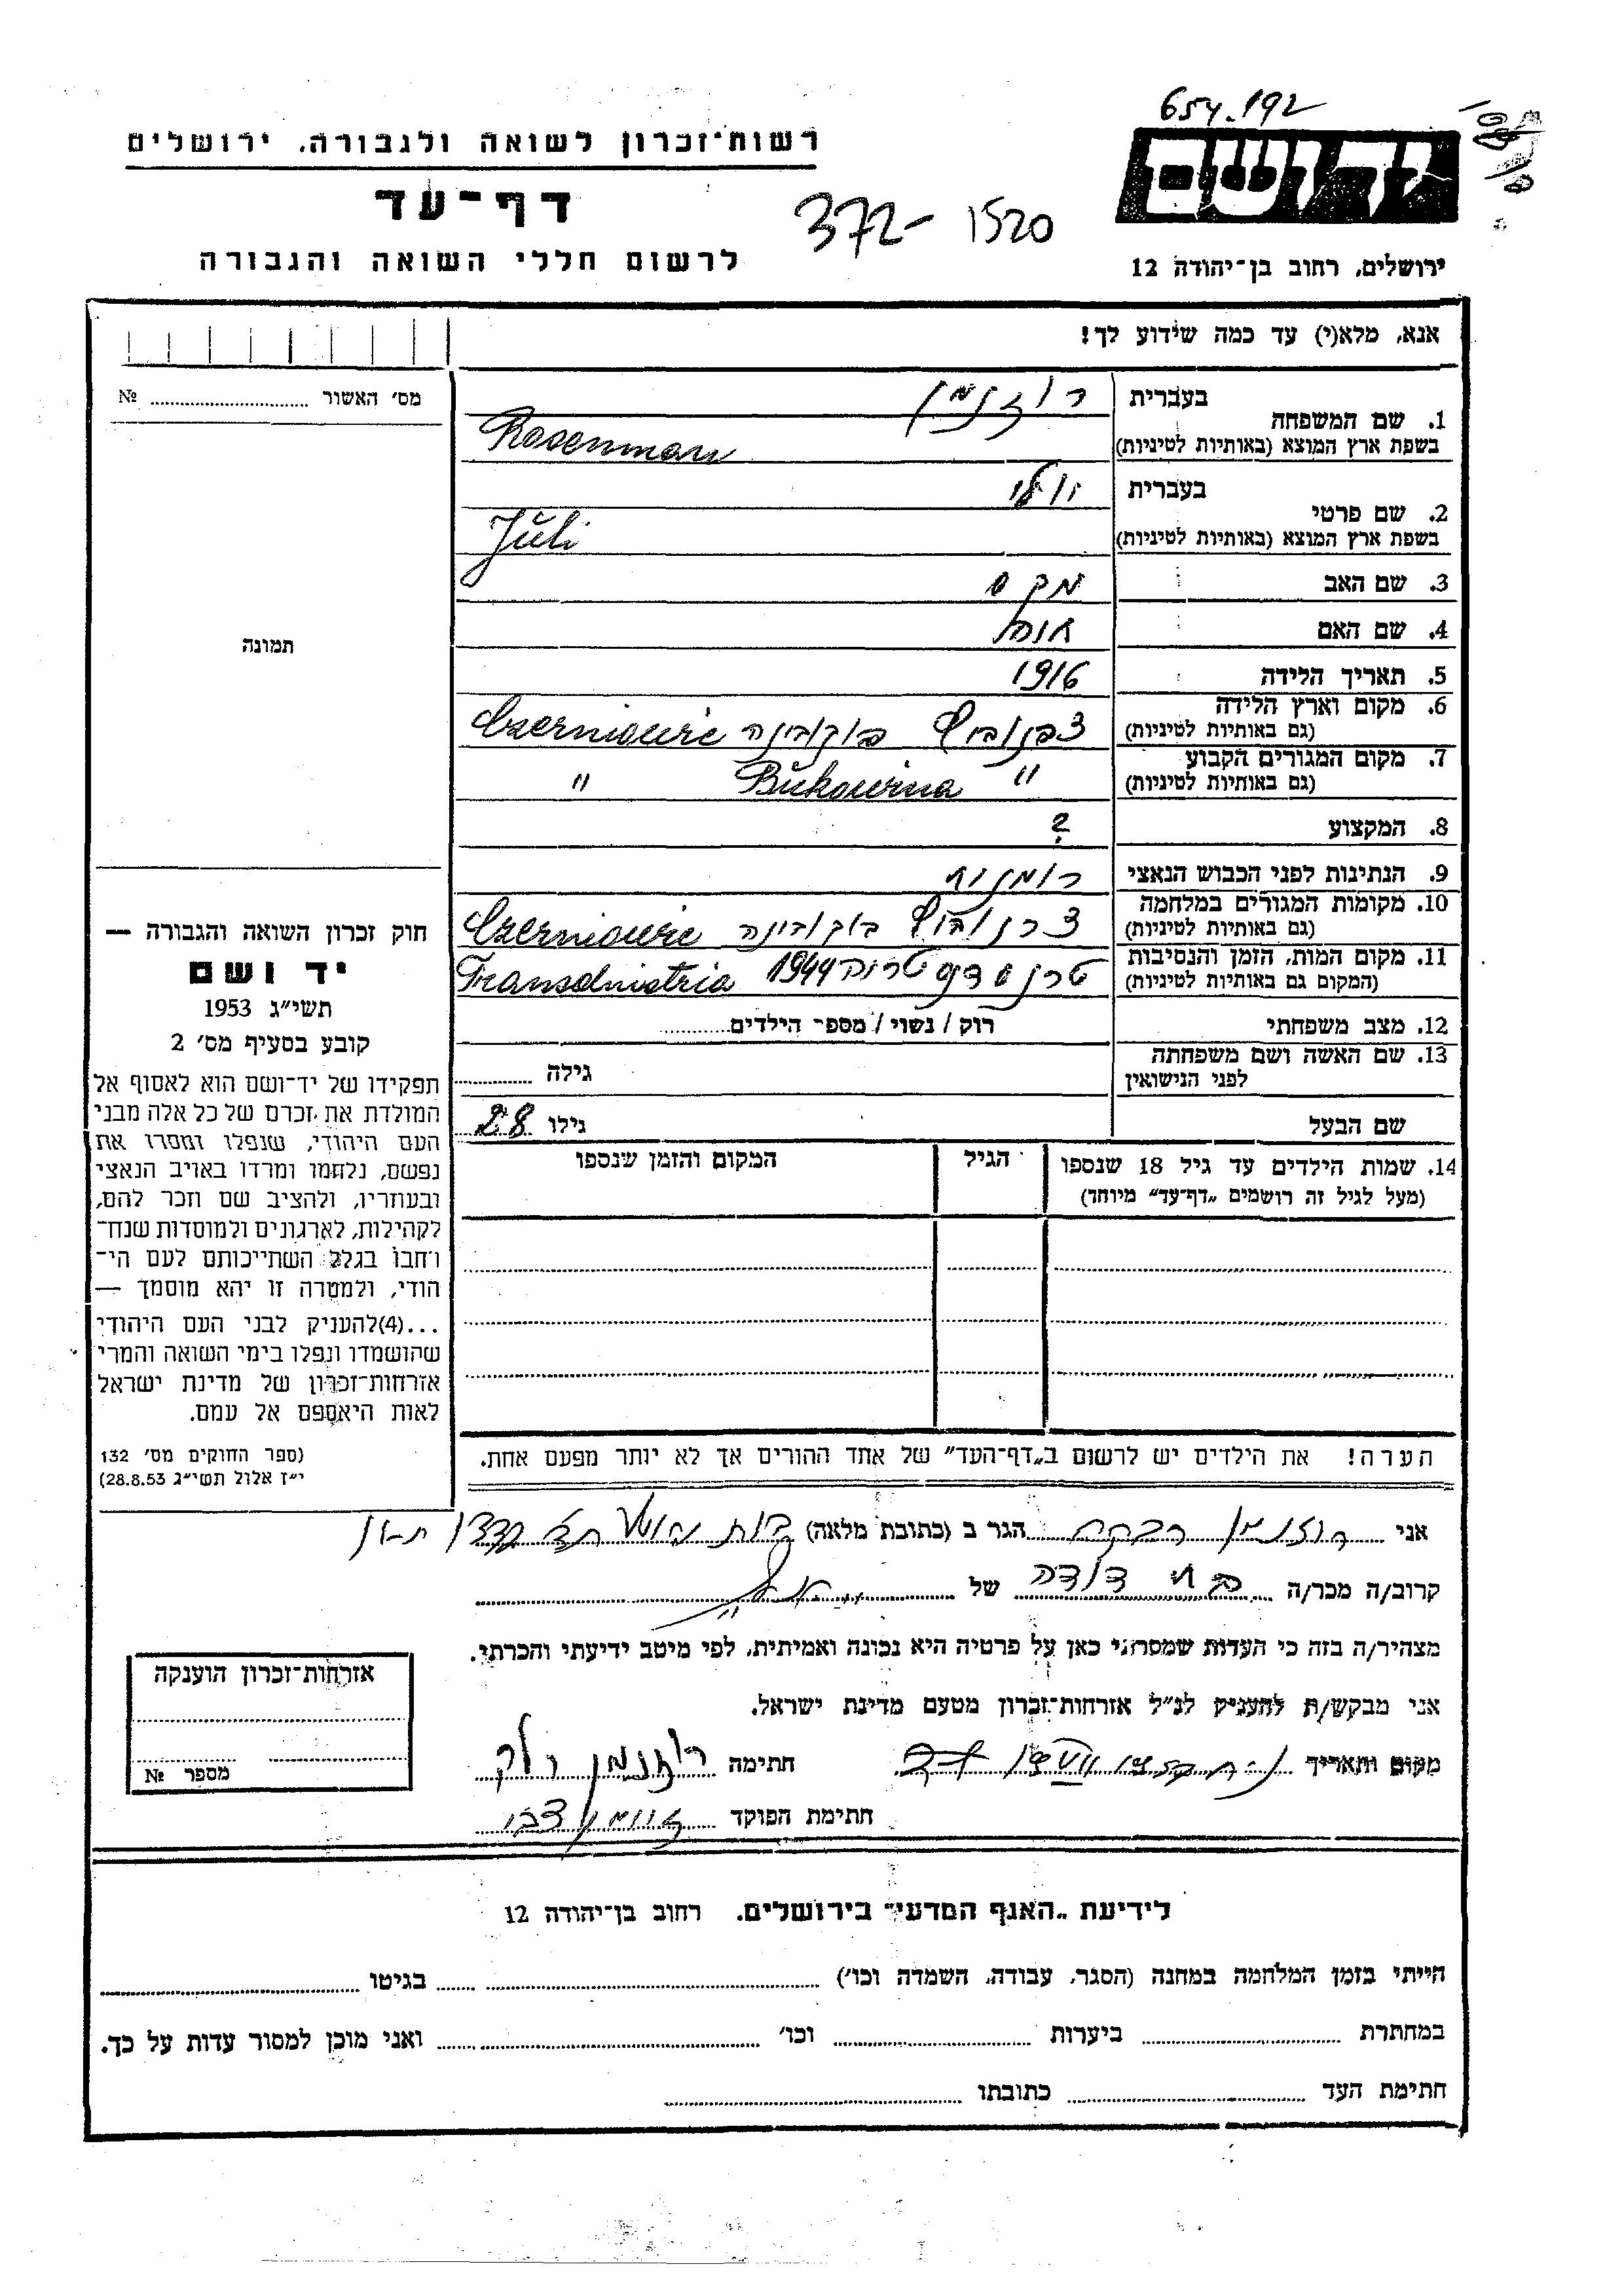 654.192
רשות־זכרון לשואה ולגבורה, ירושלים
ידושם
דף־עד
372- 1520
לרשום חללי השואה והגבורה
ירושלים, רחוב בן־יהודה 12
אנא, מלא(י) עד כמה שידוע לך!
מס׳ האשור № 
1. שם המשפחה בעברית רוזנמן
בשפת ארץ המוצא (באותיות לטיניות) Rosenman
2. שם פרטי בעברית יולי
בשפת ארץ המוצא (באותיות לטיניות) Juli
3. שם האב מקס
4. שם האם
תמונה
5. תאריך הלידה 1916
6. מקום וארץ הלידה (גם באותיות לטיניות) צרנוביץ בוקובינה Czerniowre
7. מקום המגורים הקבוע (גם באותיות לטיניות) " Bukowina "
8. המקצוע ?
9. הנתינות לפני הכבוש הנאצי רומנית
10. מקומות המגורים במלחמה (גם באותיות לטיניות) צרנוביץ בוקובינה Czerniowre
11. מקום המות, הזמן והנסיבות (המקום גם באותיות לטיניות) 1944 Transdnistria
12. מצב משפחתי רוק / נשוי / מספר הילדים
13. שם האשה ושם משפחתה לפני הנישואין גילה
שם הבעל גילו 28
14. שמות הילדים עד גיל 18 שנספו הגיל המקום והזמן שנספו
(מעל לגיל זה רושמים „דף־עד״ מיוחד)
חוק זכרון השואה והגבורה —
יד ושם
תשי״ג 1953
קובע בסעיף מס׳ 2
תפקידו של יד־ושם הוא לאסוף אל
המולדת את זכרם של כל אלה מבני
העם היהודי, שנפלו ומסרו את
נפשם, נלחמו ומרדו באויב הנאצי
ובעוזריו, ולהציב שם וזכר להם,
לקהילות, לארגונים ולמוסדות שנח־
רחבו בגלל השתייכותם לעם הי־
הודי, ולמטרה זו יהא מוסמך —
...(4)להעניק לבני העם היהודי
שהושמדו ונפלו בימי השואה והמרי
אזרחות־זכרון של מדינת ישראל
לאות היאספם אל עמם.
(ספר החוקים מס׳ 132
י״ז אלול תשי״ג 28.8.53)
הערה! את הילדים יש לרשום ב„דף־העד״ של אחד ההורים אך לא יותר מפעם אחת.
אני רוזנמן רבקה הגר ב (כתובת מלאה)
קרוב/ה מכר/ה בת דודה של
מצהיר/ה בזה כי העדות שמסרתי כאן על פרטיה היא נכונה ואמיתית, לפי מיטב ידיעתי והכרתי.
אני מבקש/ת להעניק לנ״ל אזרחות־זכרון מטעם מדינת ישראל.
מקום ותאריך חתימה רוזנמן
חתימת הפוקד
אזרחות־זכרון הוענקה
מספר №
לידיעת „האגף המדעי״ בירושלים, רחוב בן־יהודה 12
הייתי בזמן המלחמה במחנה (הסגר, עבודה, השמדה וכו׳) בגיטו
במחתרת ביערות וכו׳ ואני מוכן למסור עדות על כך.
חתימת העד כתובתו